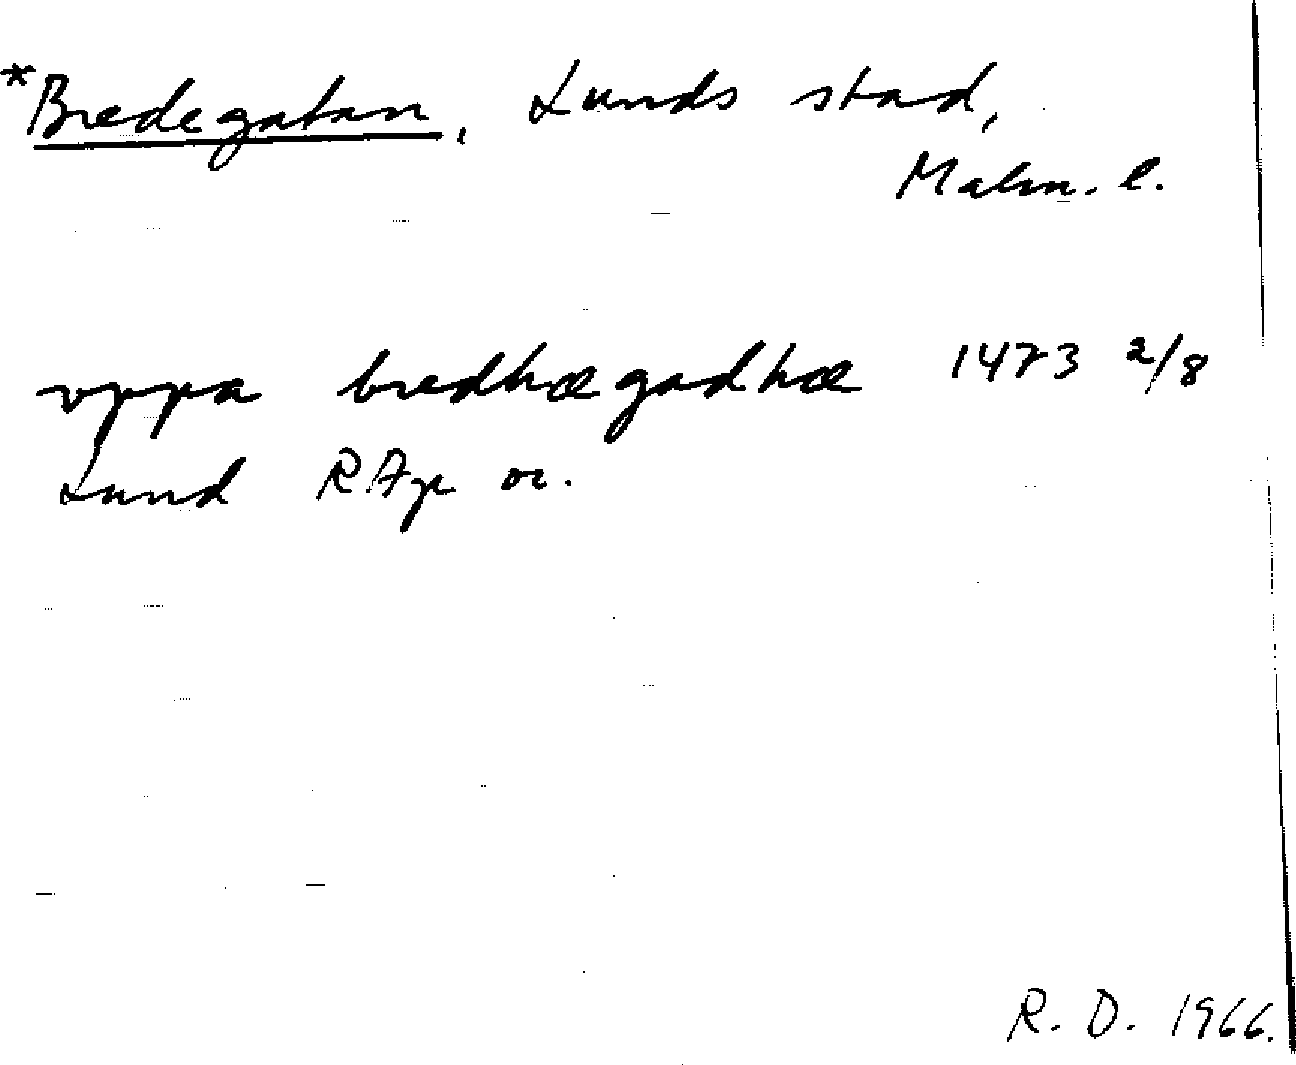 *Bredegatan, Lunds stad,
Malm. l.
vppa bredhægadhæ 1473 2/8
Lund RAp or.
R. D. 1966.